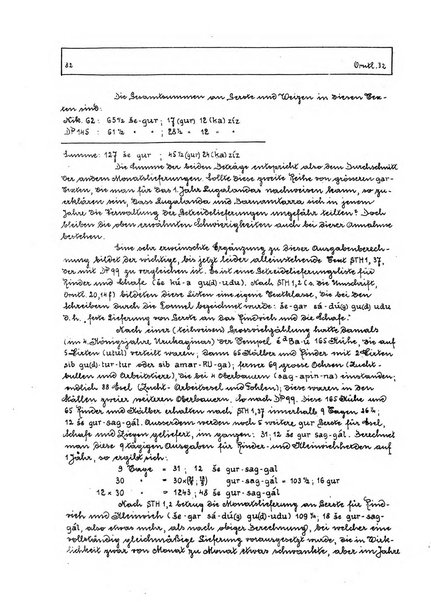 82 Orntl. 32
Die Gesamtsummen an Gerste und Weizen in diesen Tex-
ten sind:
Nik. 62: 65½ še-gur; 17 (gur) 12 (ka) zíz
DP 145 : 61½ " " ; 28½ " 12 " "
Summe: 127 še gur ; 45½ (gur) 24 (ka) zíz
Die Summe der beiden Beträge entspricht also dem Durchschnitt
der andern Monatslieferungen. Sollte diese zweite Reihe von grösseren gar-
Texten, die man für das 1. Jahr Lugalandas nachweisen kann, so zu
erklären sein, dass Lugalanda und Barnamtarra sich in jenem
Jahre die Verwaltung der Getreidelieferungen ungefähr teilten? Doch
bleiben die oben erwähnten Schwierigkeiten auch bei dieser Annahme
bestehen.
Eine sehr erwünschte Ergänzung zu dieser Ausgabenberech-
nung bildet der wichtige, bis jetzt leider alleinstehende Text STH 1, 37,
der mit DP 99 zu vergleichen ist. Es ist eine Getreidelieferungsliste für
Rinder und Schafe (še kú-a gu(d)-udu). Nach STH 1,2 (s. die Umschrift,
Orntl. 20, 1 ff) bildeten diese Listen eine eigene Textklasse, die bei den
Schreibern durch die Formel bezeichnet wurde: še-gar sá-dú(g) gu(d) udu
d. h. „feste Lieferung von Gerste an das Findrich und die Schafe."
Nach einer (teilweisen) Grossviehzählung hatte damals
(im 4. Königsjahre Urukaginas) der Tempel é ᵈBa-ú 165 Kühe, die auf
5 Hirten (utul) verteilt waren; dann 65 Kälber und Rinder mit 2 Hirten
sib gu(d)-tur-tur oder sib amar-RU-ga); ferner 69 grosse Ochsen (Zucht-
bullen und Arbeitstiere), die bei 4 Oberbauern (sag-apin-na) einstanden;
endlich 88 Esel (Zucht- Arbeitsesel und Fohlen); diese waren in den
Ställen zweier weiteren Oberbauern. So nach DP 99. Diese 165 Kühe und
65 Rinder und Kälber erhalten nach STH 1,37 innerhalb 9 Tagen 26¼;
12 še gur-sag-gál. Ausserdem werden noch 5 weitere gur Gerste für Esel,
Schafe und Ziegen geliefert, im ganzen: 31; 12 še gur-sag-gál. Berechnet
man diese 9 tägigen Ausgaben für Rinder- und Kleinviehherden auf
1 Jahr, so ergibt sich:
9 Tage = 31 ; 12 še gur-sag-gál
gur-sag-gál = 103½; 16 gur
12 × 30 " = 1243; 48 še gur-sag-gál
Nach STH 1,2 betrug die Monatslieferung an Gerste für Rind-
vieh und Kleinvieh (še-gar sá-dú(g) gu(d)-udu) 109¼; 18 še gur-sag-
gál, also etwas mehr, als nach obiger Berechnung, bei welcher eine
vollständig gleichmässige Lieferung vorausgesetzt wurde, die in Wirk-
lichkeit zwar von Monat zu Monat etwas schwankte, aber im Jahre